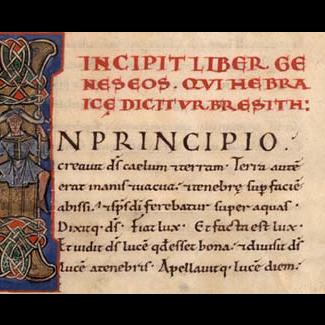 INCIPIT LIBER GE
NESEOS. QVI HEBRA
ICĘ DICITVR BRESITH:
IN PRINCIPIO.
creauit dſ caelum ⁊terram. Terra autē
erat inanis ⁊uacua. ⁊tenebrę sup faciē
abissi. ⁊sp̄s dī ferebatur super aquas.
Dixitq; dſ. Fiat lux. Et facta est lux.
Et uidit dſ lucē qd̄ esset bona. ⁊diuisit dſ
lucē a tenebris. Appellauitq; lucē diem.